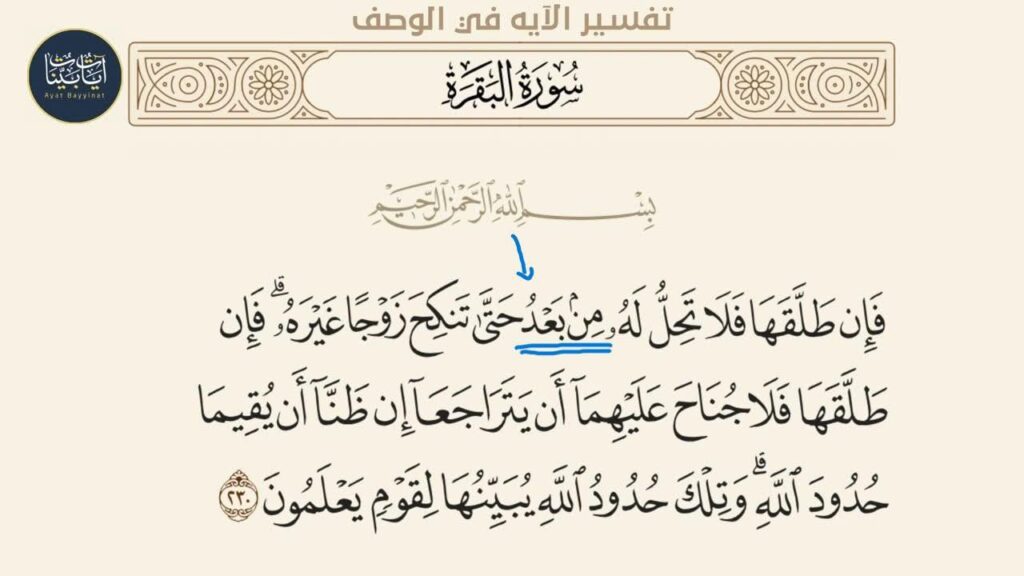 تفسير الآيه في الوصف
آيات بينات
Ayat Bayyinat
سُورَةُ البَقَرَةِ
بِسْمِ ٱللَّهِ ٱلرَّحْمَٰنِ ٱلرَّحِيمِ
فَإِن طَلَّقَهَا فَلَا تَحِلُّ لَهُۥ مِنۢ بَعْدُ حَتَّىٰ تَنكِحَ زَوْجًا غَيْرَهُۥۗ فَإِن
طَلَّقَهَا فَلَا جُنَاحَ عَلَيْهِمَآ أَن يَتَرَاجَعَآ إِن ظَنَّآ أَن يُقِيمَا
حُدُودَ ٱللَّهِۗ وَتِلْكَ حُدُودُ ٱللَّهِ يُبَيِّنُهَا لِقَوْمٍ يَعْلَمُونَ ٢٣٠